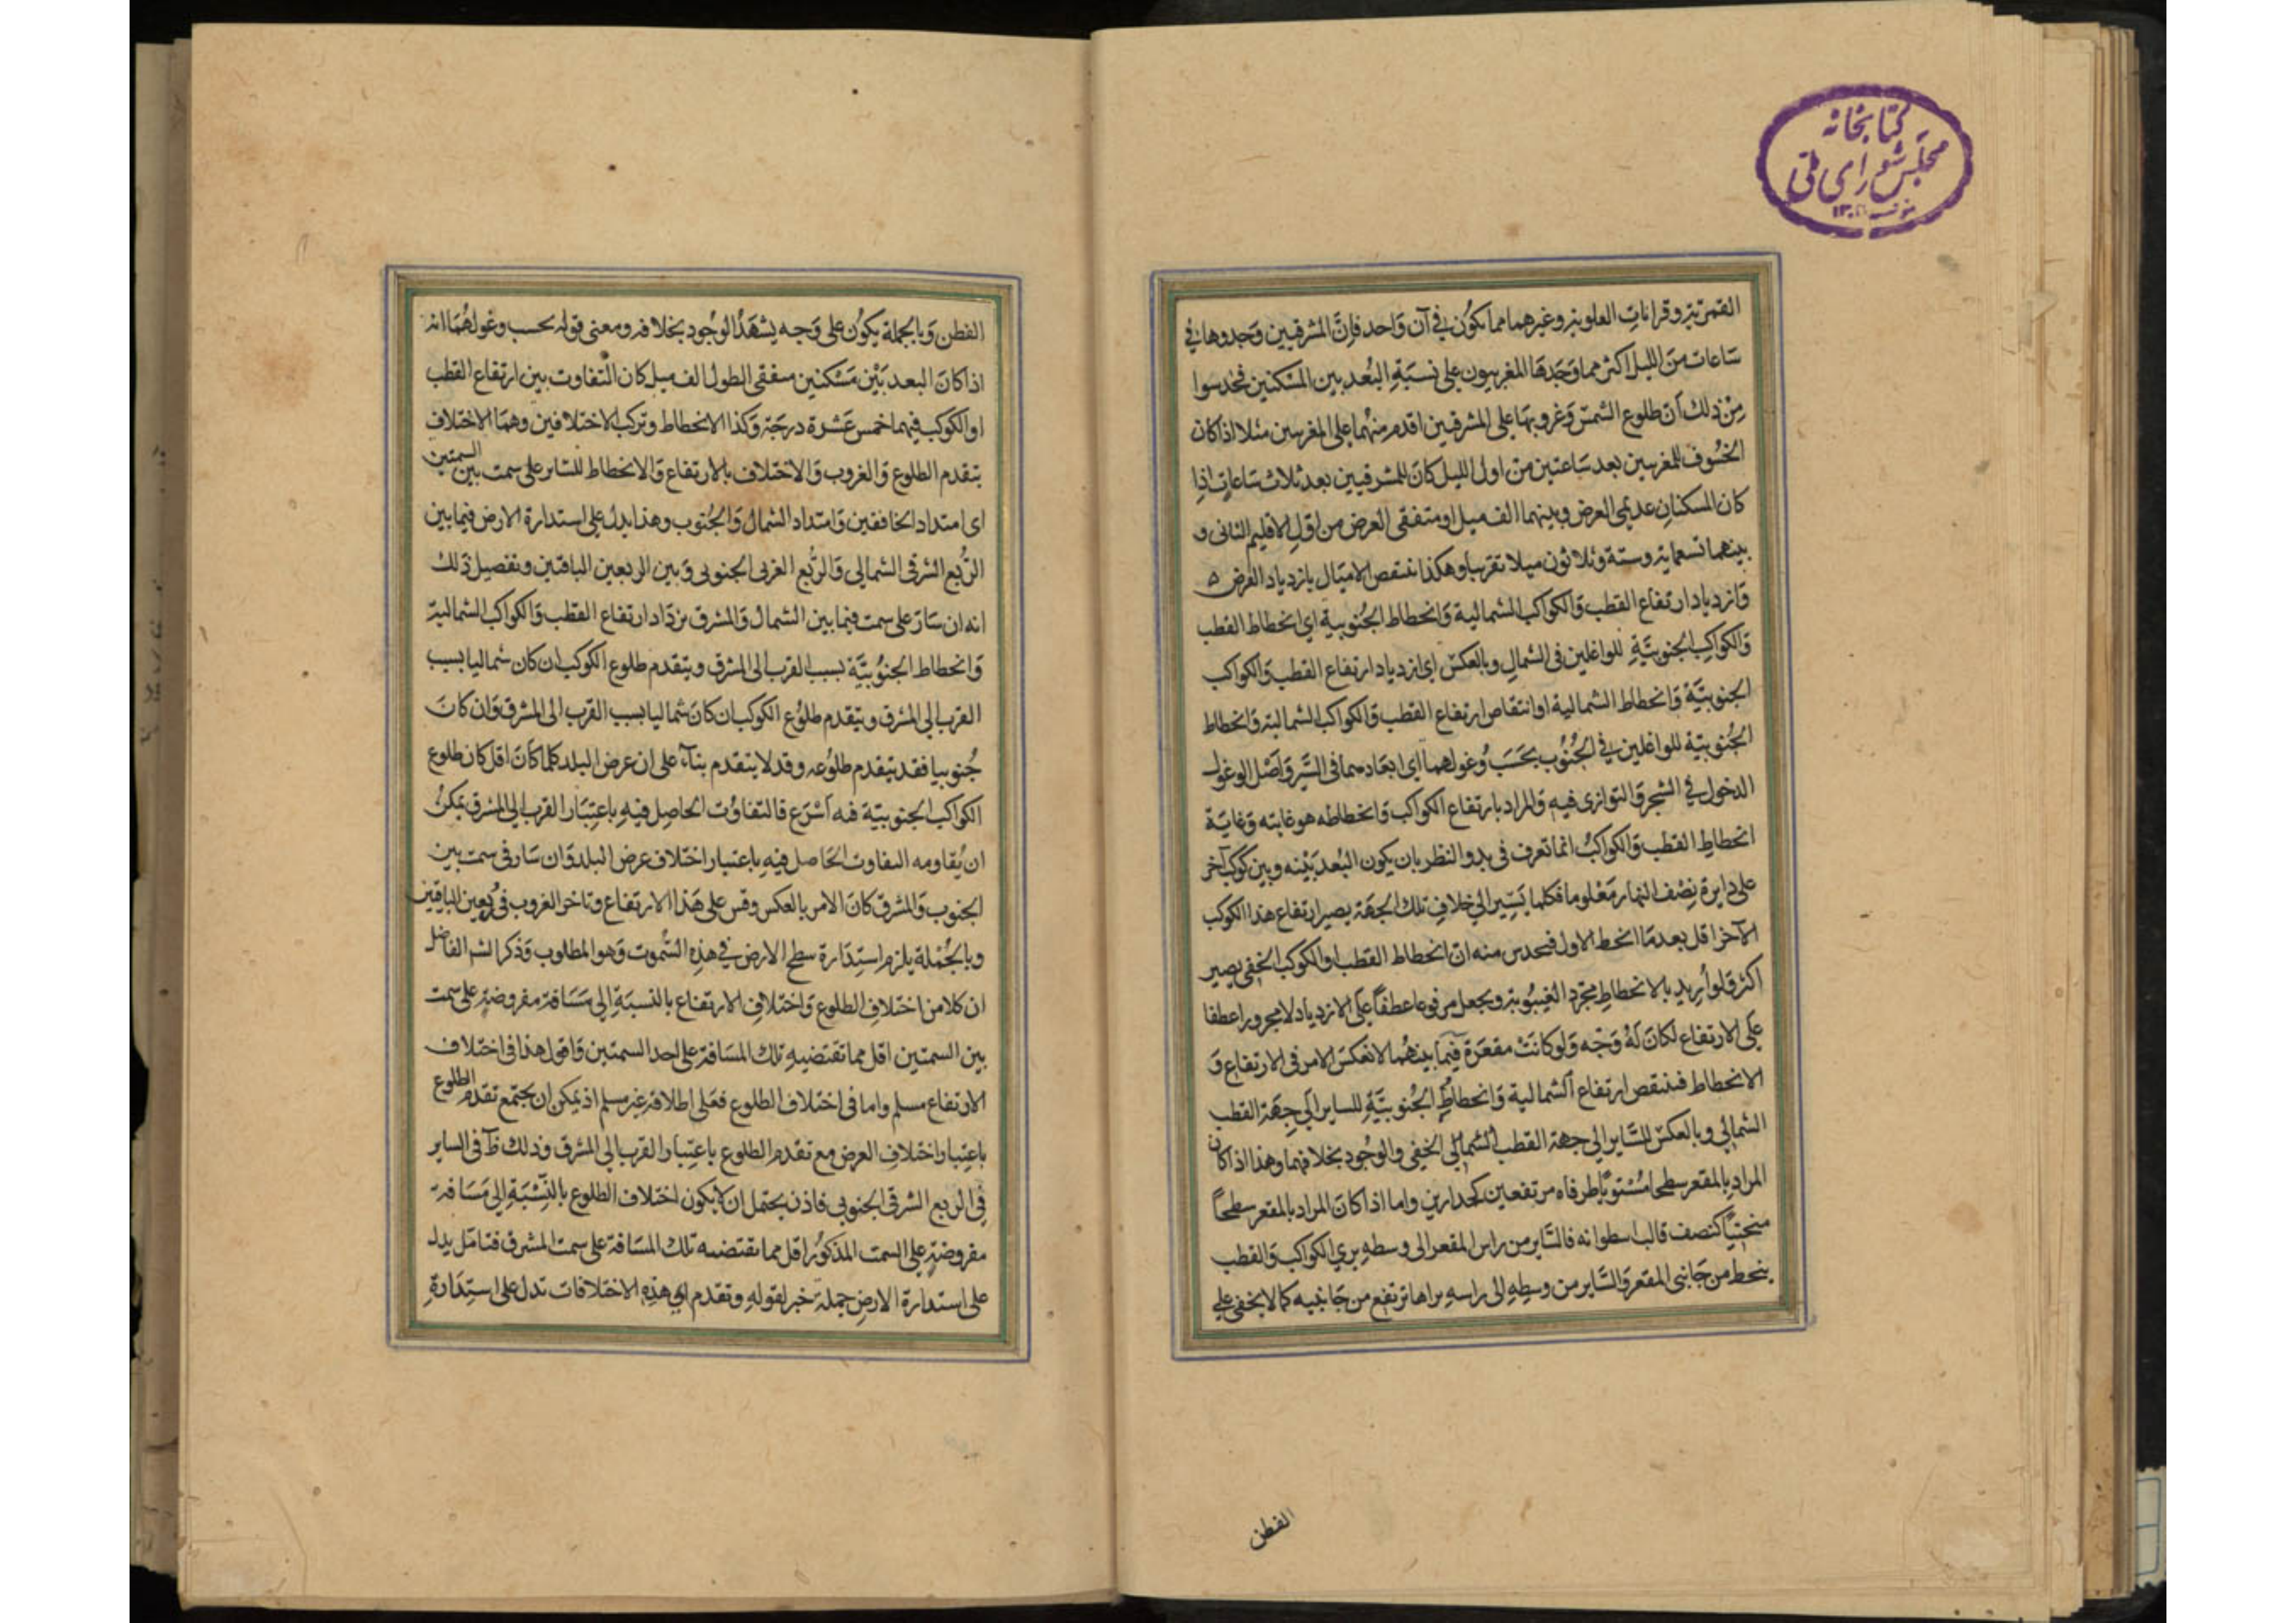 كتابخانه
مجلس شورای ملی
القمرية وقرانات العلوية وغيرهما مما يكون في آن واحد فإن المشرقيين وجدوها في
ساعات من الليل أكثر مما وجدها المغربيون على نسبة البعد بين المسكنين فحدسوا
من ذلك أن طلوع الشمس وغروبها على المشرقيين اقدم منهما على المغربيين مثلا اذا كان
الخسوف للمغربيين بعد ساعتين من اول الليل كان للمشرقيين بعد ثلاث ساعات اذا
كان المسكنان عديمي العرض وبينهما الف ميل او متفقي العرض من اول الاقليم الثاني و
بينهما تسعماية وستة وثلاثون ميلا تقريبا وهكذا ينتقص الاميال بازدياد العرض
وازدياد ارتفاع القطب والكواكب الشمالية وانحطاط الجنوبية اي انحطاط القطب
والكواكب الجنوبية للواغلين في الشمال وبالعكس اي ازدياد ارتفاع القطب والكواكب
الجنوبية وانحطاط الشمالية او انتقاص ارتفاع القطب والكواكب الشمالية وانحطاط
الجنوبية للواغلين في الجنوب بحسب وغولهما اي ابعادهما في السير واصل الوغول
الدخول في الشجر والتوازى فيه والمراد بارتفاع الكواكب وانحطاطه هو غايته وغاية
انحطاط القطب والكواكب انما تعرف في بدو النظر بان يكون البعد بينه وبين كوكب آخر
على دايرة نصف النهار معلوما فكلما يسير الى خلاف تلك الجهة يصير ارتفاع هذا الكوكب
الآخر اقل بعد ما انحط الاول فيحدس منه ان انحطاط القطب او الكوكب الخفى يصير
اكثر قلوا ريد بالانحطاط مجرد الغيبوبة ويجعل مرفوعا عطفا على الازدياد لا مجرورا عطفا
على الارتفاع لكان له وجه ولو كانت مقعرة فيما بينهما لانعكس الامر في الارتفاع و
الانحطاط فينتقص ارتفاع الشمالية وانحطاط الجنوبية للساير الى جهة القطب
الشمالي وبالعكس للساير الى جهة القطب الشمالي الخفي والوجود بخلافهما وهذا اذا كان
المراد بالمقعر سطحا مستويا طرفاه مرتفعين كجدارين واما اذا كان المراد بالمقعر سطحا
منحنيا كنصف قالب اسطوانه فالساير من راس المقعر الى وسطه يرى الكواكب والقطب
ينحط من جانبي المقعر والساير من وسطه الى راسه يراها ترتفع من جانبيه كما لا يخفى على
الفطن
الفطن وبالجملة يكون على وجه يشهد الوجود بخلافه ومعنى قوله بحسب وغولهما انه
اذا كان البعد بين مسكنين متفقي الطول الف ميل كان التفاوت بين ارتفاع القطب
او الكوكب فيهما خمس عشرة درجة وكذا الانحطاط وتركب الاختلافين وهما الاختلاف
بتقدم الطلوع والغروب والاختلاف بالارتفاع والانحطاط للساير على سمت بين السمتين
اى امتداد الخافقين وامتداد الشمال والجنوب وهذا يدل على استدارة الارض فيما بين
الربع الشرقى الشمالي والربع الغربى الجنوبى وبين الربعين الباقيين وتفصيل ذلك
انه ان سار على سمت فيما بين الشمال والمشرق يزداد ارتفاع القطب والكواكب الشمالية
وانحطاط الجنوبية بسبب القرب الى المشرق ويتقدم طلوع الكوكب ان كان شماليا بسبب
القرب الى المشرق ويتقدم طلوع الكوكب ان كان شماليا بسبب القرب الى المشرق وان كان
جنوبيا فقد يتقدم طلوعه وقد لا يتقدم بناء على ان عرض البلد كلما كان اقل كان طلوع
الكواكب الجنوبية فيه اسرع فالتفاوت الحاصل فيه باعتبار القرب الى المشرق يمكن
ان يقاومه التفاوت الحاصل فيه باعتبار اختلاف عرض البلد وان سار في سمت بين
الجنوب والمشرق كان الامر بالعكس وقس على هذا الارتفاع وتاخر الغروب في ربعين الباقيين
وبالجملة يلزم استدارة سطح الارض في هذه السموت وهو المطلوب وذكر الشم الفاضل
ان كلا من اختلاف الطلوع واختلاف الارتفاع بالنسبة الى مسافة مفروضة على سمت
بين السمتين اقل مما تقتضيه تلك المسافة على احد السمتين واقول هذا في اختلاف
الارتفاع مسلم واما في اختلاف الطلوع فعلى اطلاقه غير مسلم اذ يمكن ان يجتمع تقدم الطلوع
باعتبار اختلاف العرض مع تقدم الطلوع باعتبار القرب الى المشرق وذلك ظ في الساير
في الربع الشرقى الجنوبى فاذن يحتمل ان لا يكون اختلاف الطلوع بالنسبة الى مسافة
مفروضة على السمت المذكور اقل مما يقتضيه تلك المسافة على سمت المشرق فتامل يدل
على استدارة الارض جملة خبر لقوله وتقدم اي هذه الاختلافات تدل على استدارة